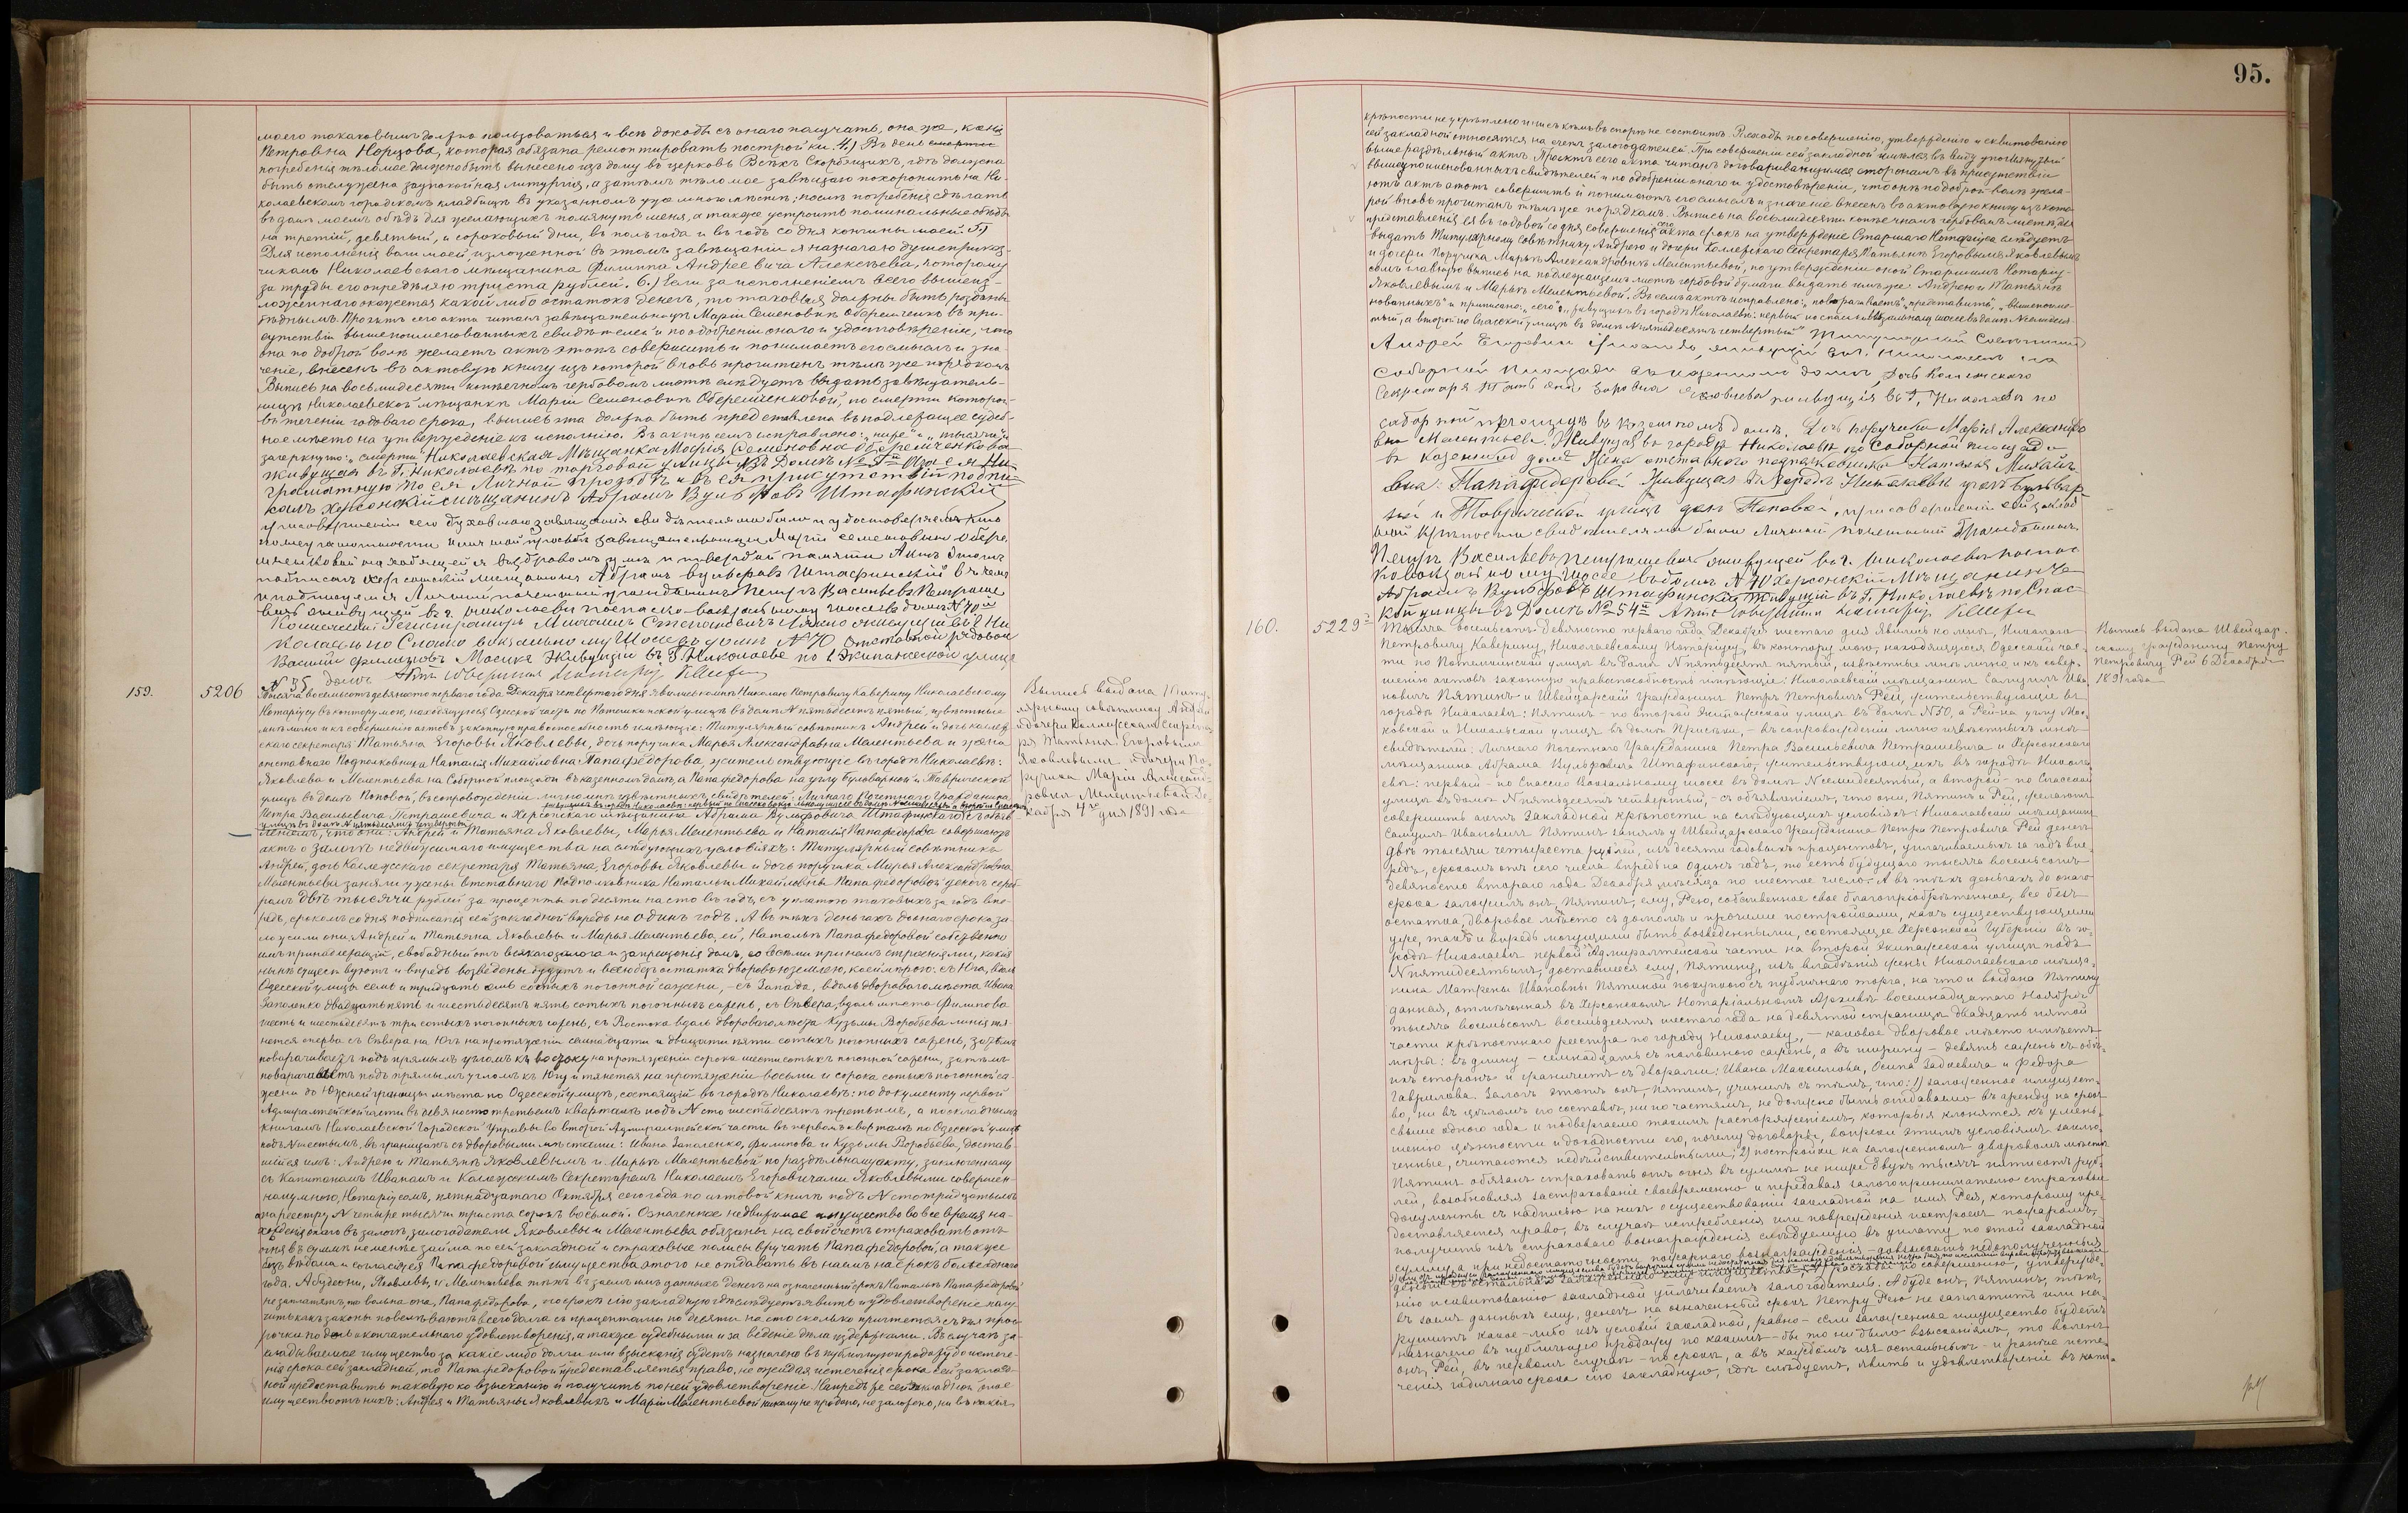 95.
моего таковымъ должна пользоваться и всѣ доходы съ онаго получать, она же,
Петровна Норцова, которая обязана ремонтировать постройки. 4.) Въ день смерти
погребенія тѣло мое должно быть вынесено изъ дому въ церковь Всѣхъ Скорбящихъ, гдѣ должна
быть отслужена заупокойная литургія, а затѣмъ тѣло мое завѣщаю похоронить на Ни-
колаевскомъ городскомъ кладбищѣ въ указанномъ уже мною мѣстѣ; послѣ погребенія сдѣлать
въ домѣ моемъ обѣдъ для желающихъ помянуть меня, а также устроить поминальные обѣды
на третій, девятый, и сороковый дни, въ полъ года и въ годъ со дня кончины моей. 5.)
Для исполненія воли моей, изложенной въ этомъ завѣщаніи я назначаю душеприказ-
чикомъ Николаевскаго мѣщанина Филиппа Андреевича Алексѣева, которому
за труды его опредѣляю триста рублей. 6.) Если за исполненіемъ всего вышеиз-
ложеннаго окажется какой либо остатокъ денегъ, то таковыя должны быть розданы
бѣднымъ. Проэктъ сего акта читанъ завѣщательницѣ Маріи Семеновнѣ въ при-
сутствіи вышепоименованныхъ свидѣтелей и по одобреніи онаго и удостовѣреніи, что
она по доброй волѣ желаетъ актъ этотъ совершить и понимаетъ его смыслъ и зна-
ченіе, внесенъ въ актовую книгу изъ которой вновь прочитанъ тѣмъ же порядкомъ
Выпись на восьмидесяти копѣечномъ гербовомъ листѣ слѣдуетъ выдать завѣщатель-
ницѣ Николаевской мѣщанкѣ Маріи Семеновнѣ Оберемченковой, по смерти которой
въ теченіи годоваго срока, выпись эта должна быть представлена въ подлежащее судеб-
ное мѣсто на утвержденіе къ исполненію. Въ актѣ семъ исправлено: „ниже" и „тысяча" и
зачеркнуто: „смерти" Николаевская Мѣщанка Марія Семеновна Оберемченкова
живущая въ Г. Николаевѣ по торговой улицѣ въ Домѣ № 5й А за ея Не-
грамотную по ея Личной просьбѣ и въ ея присутствіи подпи-
салъ Херсонскій мѣщанинъ Абрамъ Вульфовъ Штафинскій
При совершеніи сего духовнаго завѣщанія свидѣтелями были и удостовѣряемъ что
по неграмотности и личной просьбѣ завѣщательницы Маріи Семеновны Обере-
мченковой находящейся въ здравомъ умѣ и твердой памяти Актъ этотъ
подписалъ херсонскій мещанинъ Абрамъ Вульфовъ Штафинскій въ чемъ
и подписуемся Личный почетный гражданинъ Петръ Васильевъ Петраше-
вичъ живущей въ г. Николаеви по Спаско-вокзальному шоссе въ доме № 70й
Колежский Регистраторъ Михаилъ Степановичъ живущій въ г. Ни-
колаевѣ по Спаско вокзальному Шоссе въ домѣ № 70 Отставной рядовой
Василий Филиповъ Мосика Живущій въ Г. Николаеве по 1 Экипажеской улице
№ 35 домъ Актъ совершилъ Нотаріусъ
159.
5206
Тысяча восемьсотъ девяносто перваго года Декабря четвертаго дня явились ко мнѣ Николаю Петровичу Каверину Николаевскому
Нотаріусу въ контору мою, находящуюся Одесской части по Потемкинской улицѣ въ домѣ N пятьдесятъ пятый, извѣстные
мнѣ лично и къ совершенію актовъ законную правоспособность имѣющіе: Титулярный совѣтникъ Андрей и дочь коллеж-
скаго секретаря Татьяна Егоровы Яковлевы, дочь поручика Марья Александровна Мелентьева и жена
отставнаго Подполковника Наталія Михайловна Папафедорова, жительствующіе въ городѣ Николаевѣ:
Яковлева и Мелентьева на Соборной площади въ казенномъ домѣ, а Папафедорова на углу Бульварной и Таврической
улицъ въ домѣ Поповой, въ сопровожденіи лично мнѣ извѣстныхъ свидѣтелей, Личнаго Почетнаго Гражданина
живущихъ въ городѣ Николаевѣ: первый по Спасско вокзальному шоссе въ домѣ N семидесятый, а второй по Спасской
Петра Васильевича Петрашевича и Херсонскаго мѣщанина Абрама Вульфовича Штафинскаго съ объяв-
улицѣ въ домѣ N пятьдесятъ четвертый
леніемъ, что они: Андрей и Татьяна Яковлевы, Марья Мелентьева и Наталія Папафедорова совершаютъ
актъ о залогѣ недвижимаго имущества на слѣдующихъ условіяхъ: Титулярный совѣтникъ
Андрей, дочь Коллежскаго секретаря Татьяна Егоровы Яковлевы и дочь поручика Марья Александровна
Мелентьева заняли у жены отставнаго Подполковника Натальи Михайловны Папафедоровой денегъ сереб-
ромъ двѣ тысячи рублей за проценты по десяти на сто въ годъ, съ уплатою таковыхъ за годъ впе-
редъ, срокомъ со дня подписанія сей закладной впредь на одинъ годъ. А въ тѣхъ деньгахъ до онаго срока за-
ложили они, Андрей и Татьяна Яковлевы и Марья Мелентьева, ей, Натальѣ Папафедоровой собственно
имъ принадлежащій, свободный отъ всякаго залога и запрещенія домъ, со всѣми при немъ строеніями, какія
нынѣ существуютъ и впредь возведены будутъ и всею безъ остатка дворовою землею, коей мѣрою: съ Юга, вдоль
Одесской улицы семь и тридцать семь сотыхъ погонной сажени, – съ Запада, вдоль двороваго мѣста Ивана
Заполенко двадцать пять и шестьдесятъ пять сотыхъ погонныхъ сажень, съ Сѣвера, вдоль мѣста Филипова
шесть и шестьдесятъ три сотыхъ погонныхъ сажень, съ Востока вдоль двороваго мѣста Кузьмы Воробьева линія тя-
нется сперва съ Сѣвера на Югъ на протяженіи семнадцати и двадцати пяти сотыхъ погонныхъ сажень, затѣмъ
поварачиваетъ подъ прямымъ угломъ къ востоку на протяженіи сорока шести сотыхъ погонной сажени, затѣмъ
поварачиваетъ подъ прямымъ угломъ къ Югу и тянется на протяженіи восьми и сорока сотыхъ погонной са-
жени до Южной границы мѣста по Одесской улицѣ, состоящій въ городѣ Николаевѣ: по документу первой
Адмиралтейской части въ девяносто третьемъ кварталѣ подъ N сто шестьдесятъ третьимъ, а по окладнымъ
книгамъ Николаевской Городской Управы во второй Адмиралтейской части въ первомъ кварталѣ по Одесской улицѣ
подъ N шестымъ, въ границахъ съ дворовыми мѣстами: Ивана Заполенко, Филипова и Кузьмы Воробьева, достав-
шійся имъ: Андрею и Татьянѣ Яковлевымъ и Марьѣ Мелентьевой по раздѣльному акту, заключенному
съ Капитаномъ Иваномъ и Коллежскимъ Секретаремъ Николаемъ Егоровичами Яковлевыми совершен-
ному мною, Нотаріусомъ, пятнадцатаго Октября сего года по актовой книгѣ подъ N сто тридцатымъ
по реестру N четыре тысячи триста сорокъ восьмой. Означенное недвижимое имущество во все время на-
хожденія онаго въ залогѣ, залогодатели Яковлевы и Мелентьева обязаны на свой счетъ страховать отъ
огня въ суммѣ не менѣе займа по сей закладной и страховые полисы вручать Папафедоровой, а также
безъ вѣдома и согласія Папафедоровой имущества этого не отдавать въ наемъ на срокъ болѣе одного
года. А буде они, Яковлевы и Мелентьева тѣхъ взаемъ имъ данныхъ денегъ на означенный срокъ Натальѣ Папафедоровой
не заплатятъ, то вольна она, Папафедорова, о срокѣ сію закладную гдѣ слѣдуетъ явить и удовлетвореніе полу-
чить какъ законы повелѣваютъ всего долга съ процентами по десяти на сто сколько причтется со дня прос-
рочки по день окончательнаго удовлетворенія, а также судебными и за веденіе дѣла издержками. Въ случаѣ за-
кладываемое имущество за какіе либо долги или взысканія будетъ назначено въ публичную продажу до истече-
нія срока сей закладной, то Папафедоровой предоставляется право, не ожидая истеченія срока сей заклад-
ной предоставить таковую ко взысканію и получить по ней удовлетвореніе. Напредь же сей закладной, тое
имущество отъ нихъ: Андрея и Татьяны Яковлевыхъ и Маріи Мелентьевой никому не продано, не заложено, ни въ какія
Выпись выдана Титу-
лярному совѣтнику Андрею
и дочери Коллежскаго Секрета-
ря Татьянѣ Егоровымъ
Яковлевымъ и дочери По-
ручика Маріи Александ-
ровнѣ Мелентьевой Де-
кабря 4го дня 1891 года
крѣпости не укрѣплено и ни съ кѣмъ въ спорѣ не состоитъ. Расходы по совершенію, утвержденію и сквитованію
сей закладной относятся на счетъ залогодателей. При совершеніи сей закладной имѣлся въ виду упомянутый
выше раздѣльный актъ. Проэктъ сего акта читанъ договаривающимся сторонамъ въ присутствіи
вышеупоименованныхъ свидѣтелей и по одобреніи онаго и удостовѣреніи, что онѣ по доброй волѣ жела-
ютъ актъ этотъ совершить и понимаютъ его смыслъ и значеніе внесенъ въ актовую книгу изъ кото-
рой вновь прочитанъ тѣмъ же порядкомъ. Выпись на восьмидесяти копѣечномъ гербовомъ листѣ для
представленія ея въ годовой со дня совершенія сего акта срокъ на утвержденіе Старшаго Нотаріуса слѣдуетъ
выдать Титулярному Совѣтнику Андрею и дочери Коллежскаго Секретаря Татьянѣ Егоровымъ Яковлевымъ
и дочери Поручика Марьѣ Александровнѣ Мелентьевой, по утвержденіи оной Старшимъ Нотаріу-
сомъ главную выпись на подлежащемъ листѣ гербовой бумаги выдать имъ же Андрею и Татьянѣ
Яковлевымъ и Марьѣ Мелентьевой. Въ семъ актѣ исправлено: „поварачиваетъ" „представить", „вышепоиме-
нованныхъ" и приписано: „сего", „живущихъ въ городѣ Николаевѣ: первый по Спасско вокзальному шоссе въ домѣ N семидеся-
тый, а второй по Спасской улицѣ въ домѣ N пятьдесятъ четвертый" Титулярный Совѣтникъ
Андрей Егоровичъ Яковлевъ, живущій въ г. Николаевѣ на
Соборной площади въ казенномъ домѣ, Дочь Колежскаго
Секретаря Татьяна Егоровна Яковлева живущія въ г. Николаевѣ по
соборной площади въ казенномъ домѣ. Дочь поручика Марія Александро-
вна Мелентьева. Живущая въ городѣ Николаевѣ по Соборной площади
въ казенномъ домѣ Жена отставнаго подполковника Наталія Михайло-
вна Папафедорова Живущая въ городѣ Николаевѣ уголъ Бульвар-
ной и Таврической улицъ домъ Поповой, при совершеніи сей заклад-
ной крѣпости свидѣтелями были Личный почетный Гражданинъ
Петръ Васильевъ Петрашевичъ живущей въ г. Николаевѣ по спас-
ковокзальному шоссе въ домѣ № 70 Херсонскій Мѣщанинъ
Абрамъ Вульфовъ Штафинскій Живущій въ Г. Николаевѣ по Спас-
кой улицы въ Домѣ № 54й Актъ совершилъ Нотаріусъ
160.
5229
Тысяча восемьсотъ девяносто перваго года Декабря шестаго дня явились ко мнѣ, Николаю
Петровичу Каверину, Николаевскому Нотаріусу, въ контору мою, находящуюся Одесской час-
ти по Потемкинской улицѣ въ домѣ N пятьдесятъ пятый, извѣстные мнѣ лично и къ совер-
шенію актовъ законную правоспособность имѣющіе: Николаевскій мѣщанинъ Самуилъ Ива-
новичъ Пятинъ и Швейцарскій Гражданинъ Петръ Петровичъ Рей, жительствующіе въ
городѣ Николаевѣ: Пятинъ – по второй Экипажеской улицѣ въ домѣ N 50, а Рей – на углу Мос-
ковской и Никольской улицъ въ домѣ, – въ сопровожденіи лично извѣстныхъ мнѣ
свидѣтелей: Личнаго Почетнаго Гражданина Петра Васильевича Петрашевича и Херсонскаго
мѣщанина Абрама Вульфовича Штафинскаго, жительствующихъ въ городѣ Никола-
евѣ: первый – по Спасско Вокзальному шоссе въ домѣ N семидесятый, а второй – по Спасской
улицѣ въ домѣ N пятьдесятъ четвертый, съ объявленіемъ, что они, Пятинъ и Рей, желаютъ
совершить актъ Закладной крѣпости на слѣдующихъ условіяхъ: Николаевскій мѣщанинъ
Самуилъ Ивановичъ Пятинъ занялъ у Швейцарскаго Гражданина Петра Петровича Рей денегъ
двѣ тысячи четыреста рублей, изъ десяти годовыхъ процентовъ, уплачиваемыхъ за годъ впе-
редъ, срокомъ отъ сего числа впредь на одинъ годъ, то есть будущаго тысяча восемьсотъ
девяносто втораго года Декабря мѣсяца по шестое число. А въ тѣхъ деньгахъ до онаго
срока заложилъ онъ, Пятинъ, ему, Рею, собственное свое благопріобрѣтенное, все безъ
остатка, дворовое мѣсто съ домомъ и прочими постройками, какъ существующими
уже, такъ и впредь могущими быть возведенными, состоящее Херсонской Губерніи въ го-
родѣ Николаевѣ первой Адмиралтейской части на второй Экипажеской улицѣ подъ
N пятидесятымъ, доставшееся ему, Пятину, изъ владѣнія жены Николаевскаго мѣща-
нина Матрены Ивановны Пятиной покупкою съ публичнаго торга, на что и выдана Пятину
данная, отмѣченная въ Херсонскомъ Нотаріальномъ Архивѣ восемнадцатаго Ноября
тысяча восемьсотъ восемьдесятъ шестаго года на девятой страницѣ двадцать пятой
части крѣпостнаго реестра по городу Николаеву, – каковое дворовое мѣсто имѣетъ
мѣры: въ длину – семнадцать съ половиною сажень, а въ ширину – девять сажень съ обѣ-
ихъ сторонъ и граничитъ съ дворами: Ивана Максимова, Осипа Задкевича и Федора
Гаврилова. Залогъ этотъ онъ, Пятинъ, учинилъ съ тѣмъ, что: 1) заложенное имущест-
во, ни въ цѣломъ его составѣ, ни по частямъ, не должно быть отдаваемо въ аренду на срокъ
свыше одного года и подвергаемо такимъ распоряженіямъ, которыя клонятся къ умень-
шенію цѣнности и доходности его, почему договоры, вопреки этимъ условіямъ заклю-
ченные, считаются недѣйствительными; 2) постройки на заложенномъ дворовомъ мѣстѣ
Пятинъ обязанъ страховать отъ огня въ суммѣ не ниже двухъ тысячъ пятисотъ руб-
лей, возобновляя застрахованіе своевременно и передавая залогопринимателю страховые
документы съ надписью на нихъ о существованіи закладной на имя Рея, которому пре-
доставляется право, въ случаѣ истребленія или поврежденія построекъ пожаромъ,
получить изъ страховаго вознагражденія слѣдуемую въ уплату по этой закладной
сумму, а при недостаточности пожарнаго вознагражденія – довзыскать недополученныя
деньги съ остальнаго заложеннаго ему имущества, расходы по совершенію, утвержде-
нію и сквитованію закладной уплачиваетъ залогодатель. А буде онъ, Пятинъ, тѣхъ,
въ заемъ данныхъ ему, денегъ на означенный срокъ Петру Рею не заплатитъ или на-
рушитъ какое-либо изъ условій закладной, равно – если заложенное имущество будетъ
назначено въ публичную продажу по какимъ-бы то ни было взысканіямъ, то воленъ
онъ, Рей, въ первомъ случаѣ – по срокѣ, а въ каждомъ изъ остальныхъ – и ранѣе исте-
ченія годичнаго срока сію закладную, гдѣ слѣдуетъ, явить и удовлетвореніе въ капи-
Выпись выдана Швейцар-
скому гражданину Петру
Петровичу Рей 6 Декабря
1891 года